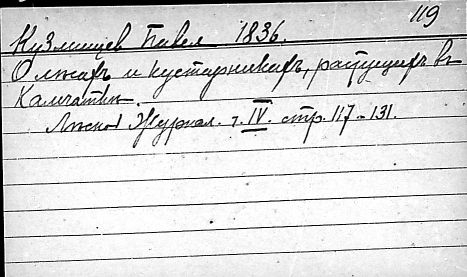 119
Кузмищев Павел 1836.
О лесахъ и кустарникахъ, растущихъ въ
Камчаткѣ.
Лесной Журнал. т. IV. стр. 117-131.